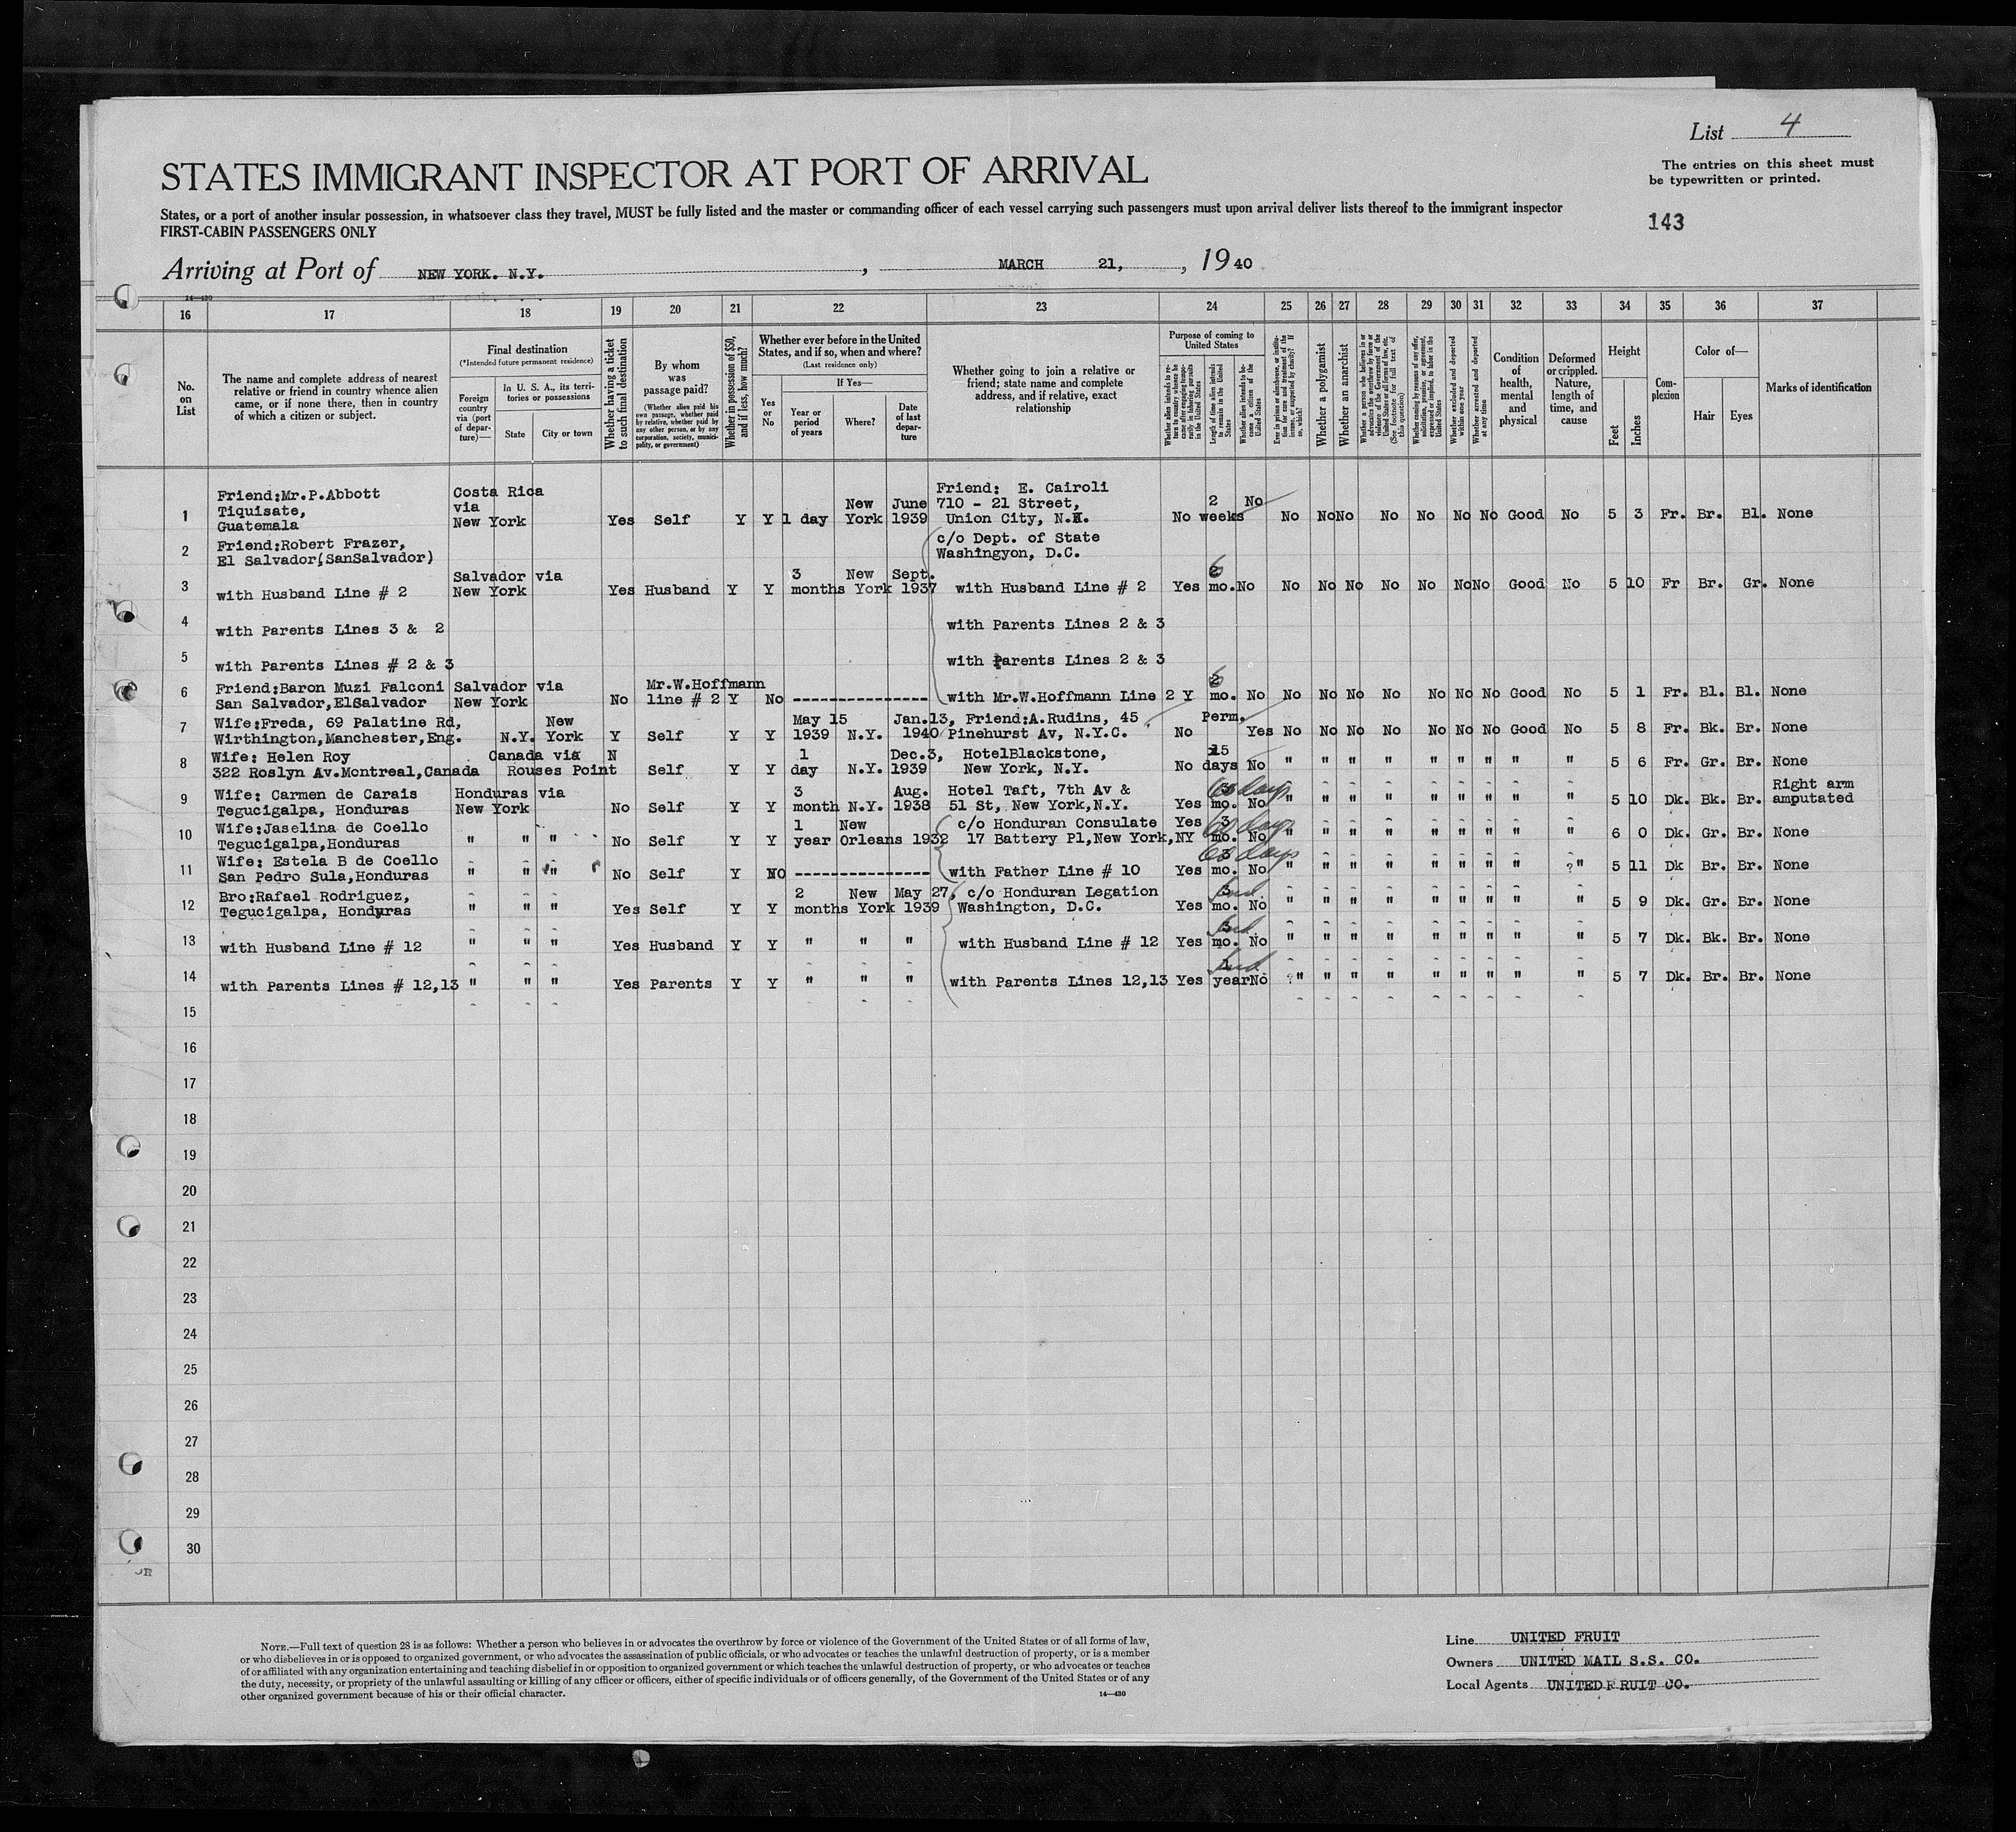 List 4
The entries on this sheet must
be typewritten or printed.
STATES IMMIGRANT INSPECTOR AT PORT OF ARRIVAL
States, or a port of another insular possession, in whatsoever class they travel, MUST be fully listed and the master or commanding officer of each vessel carrying such passengers must upon arrival deliver lists thereof to the immigrant inspector
FIRST-CABIN PASSENGERS ONLY
143
Arriving at Port of NEW YORK. N.Y. , MARCH 21, , 19 40
14—430
16 17 18 19 20 21 22 23 24 25 26 27 28 29 30 31 32 33 34 35 36 37
No. on List
The name and complete address of nearest relative or friend in country whence alien came, or if none there, then in country of which a citizen or subject.
Final destination
(*Intended future permanent residence)
Foreign country via (port of departure)—
In U. S. A., its territories or possessions
State City or town
Whether having a ticket to such final destination
By whom was passage paid?
(Whether alien paid his own passage, whether paid by relative, whether paid by any other person, or by any corporation, society, municipality, or government)
Whether in possession of $50, and if less, how much?
Whether ever before in the United States, and if so, when and where?
(Last residence only)
Yes or No
If Yes—
Year or period of years Where? Date of last departure
Whether going to join a relative or friend; state name and complete address, and if relative, exact relationship
Purpose of coming to United States
Whether alien intends to return to country whence he came after engaging temporarily in laboring pursuits in the United States
Length of time alien intends to remain in the United States
Whether alien intends to become a citizen of the United States
Ever in prison or almshouse, or institution for care and treatment of the insane, or supported by charity? If so, which?
Whether a polygamist
Whether an anarchist
(See footnote for full text of this question)
Whether coming by reason of any offer, solicitation, promise, or agreement, expressed or implied, to labor in the United States
Whether excluded and deported within one year
Whether arrested and deported at any time
Condition of health, mental and physical
Deformed or crippled. Nature, length of time, and cause
Height
Feet Inches
Complexion
Color of—
Hair Eyes
Marks of identification
1 Friend:Mr.P.Abbott Tiquisate, Guatemala Costa Rica via New York Yes Self Y Y 1 day New York June 1939 Friend: E. Cairoli 710 - 21 Street, Union City, N. No 2 weeks No No No No No No No No Good No 5 3 Fr. Br. Bl. None
2 Friend:Robert Frazer, El Salvador(SanSalvador) c/o Dept. of State Washingyon, D.C.
3 with Husband Line # 2 Salvador via New York Yes Husband Y Y 3 months New York Sept. 1937 with Husband Line # 2 Yes 6 mo. No No No No No No No No Good No 5 10 Fr Br. Gr. None
4 with Parents Lines 3 & 2 with Parents Lines 2 & 3
5 with Parents Lines # 2 & 3 with Parents Lines 2 & 3
6 Friend:Baron Muzi Falconi San Salvador,ElSalvador Salvador via New York No Mr.W.Hoffmann line # 2 Y No ---------------- with Mr.W.Hoffmann Line 2 Y 6 mo. No No No No No No No No Good No 5 1 Fr. Bl. Bl. None
7 Wife:Freda, 69 Palatine Rd, Wirthington,Manchester,Eng. N.Y. New York Y Self Y Y May 15 1939 N.Y. Jan.13, 1940 Friend:A.Rudins, 45 Pinehurst Av, N.Y.C. No Perm. Yes No No No No No No No Good No 5 8 Fr. Bk. Br. None
8 Wife: Helen Roy 322 Roslyn Av.Montreal,Canada Canada via Rouses Point N Self Y Y 1 day N.Y. Dec.3, 1939 HotelBlackstone, New York, N.Y. No 15 days No " " " " " " " " " 5 6 Fr. Gr. Br. None
9 Wife: Carmen de Carais Tegucigalpa, Honduras Honduras via New York No Self Y Y 3 month N.Y. Aug. 1938 Hotel Taft, 7th Av & 51 St, New York,N.Y. Yes 3 mo. 60 days No " " " " " " " " " 5 10 Dk. Bk. Br. Right arm amputated
10 Wife:Jaselina de Coello Tegucigalpa,Honduras " " " No Self Y Y 1 year New Orleans 1932 c/o Honduran Consulate 17 Battery Pl,New York,NY Yes 3 mo. 60 days No " " " " " " " " " 6 0 Dk. Gr. Br. None
11 Wife: Estela B de Coello San Pedro Sula,Honduras " " " No Self Y NO ---------------- with Father Line # 10 Yes 3 mo. 60 days No " " " " " " " " ?" 5 11 Dk Br. Br. None
12 Bro:Rafael Rodriguez, Tegucigalpa, Honduras " " " Yes Self Y Y 2 months New York May 27, 1939 c/o Honduran Legation Washington, D.C. Yes 3 mo. No " " " " " " " " " 5 9 Dk. Gr. Br. None
13 with Husband Line # 12 " " " Yes Husband Y Y " " " with Husband Line # 12 Yes 3 mo. No " " " " " " " " " 5 7 Dk. Bk. Br. None
14 with Parents Lines # 12,13 " " " Yes Parents Y Y " " " with Parents Lines 12,13 Yes 1 year No ?" " " " " " " " " 5 7 Dk. Br. Br. None
15
16
17
18
19
20
21
22
23
24
25
26
27
28
29
30
NOTE.—Full text of question 28 is as follows: Whether a person who believes in or advocates the overthrow by force or violence of the Government of the United States or of all forms of law,
or who disbelieves in or is opposed to organized government, or who advocates the assassination of public officials, or who advocates or teaches the unlawful destruction of property, or is a member
of or affiliated with any organization entertaining and teaching disbelief in or opposition to organized government or which teaches the unlawful destruction of property, or who advocates or teaches
the duty, necessity, or propriety of the unlawful assaulting or killing of any officer or officers, either of specific individuals or of officers generally, of the Government of the United States or of any
other organized government because of his or their official character.
14—430
Line UNITED FRUIT
Owners UNITED MAIL S.S. CO.
Local Agents UNITED FRUIT CO.